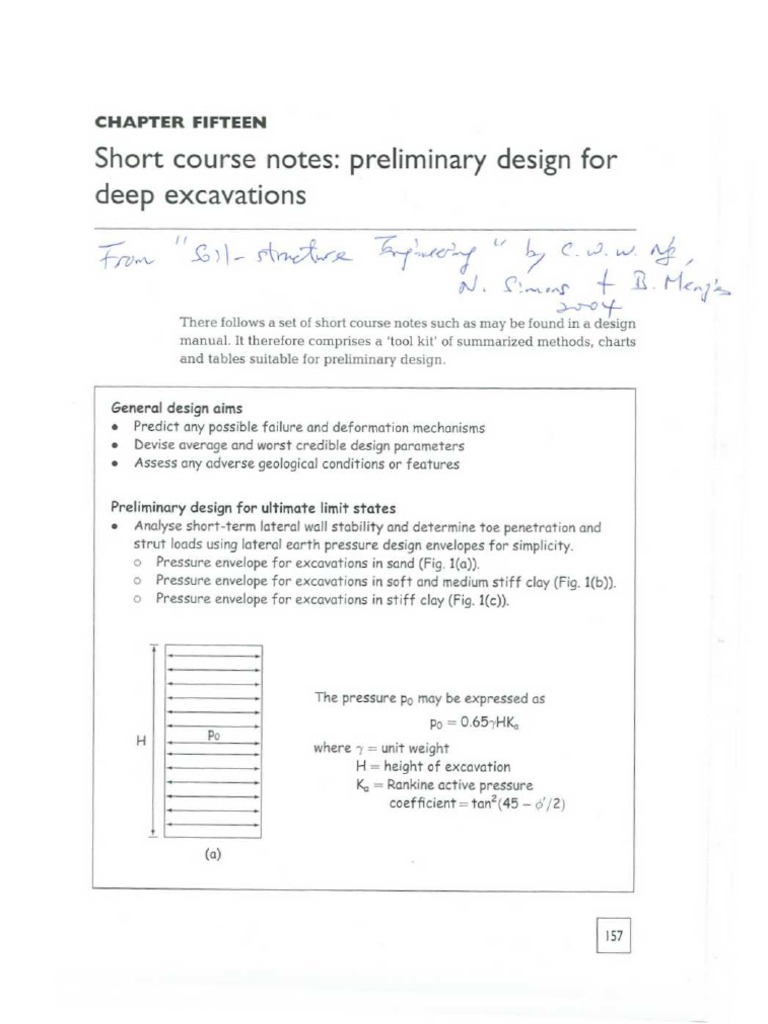 CHAPTER FIFTEEN
Short course notes: preliminary design for
deep excavations
From "Soil-structure Engineering" by C.W.W. Ng,
N. Simons + B. Menzies
2004
There follows a set of short course notes such as may be found in a design
manual. It therefore comprises a 'tool kit' of summarized methods, charts
and tables suitable for preliminary design.
General design aims
• Predict any possible failure and deformation mechanisms
• Devise average and worst credible design parameters
• Assess any adverse geological conditions or features
Preliminary design for ultimate limit states
• Analyse short-term lateral wall stability and determine toe penetration and
strut loads using lateral earth pressure design envelopes for simplicity.
○ Pressure envelope for excavations in sand (Fig. 1(a)).
○ Pressure envelope for excavations in soft and medium stiff clay (Fig. 1(b)).
○ Pressure envelope for excavations in stiff clay (Fig. 1(c)).
H
p₀
(a)
The pressure p₀ may be expressed as
p₀ = 0.65γHKₐ
where γ = unit weight
H = height of excavation
Kₐ = Rankine active pressure
coefficient = tan²(45 – ϕ′/2)
157